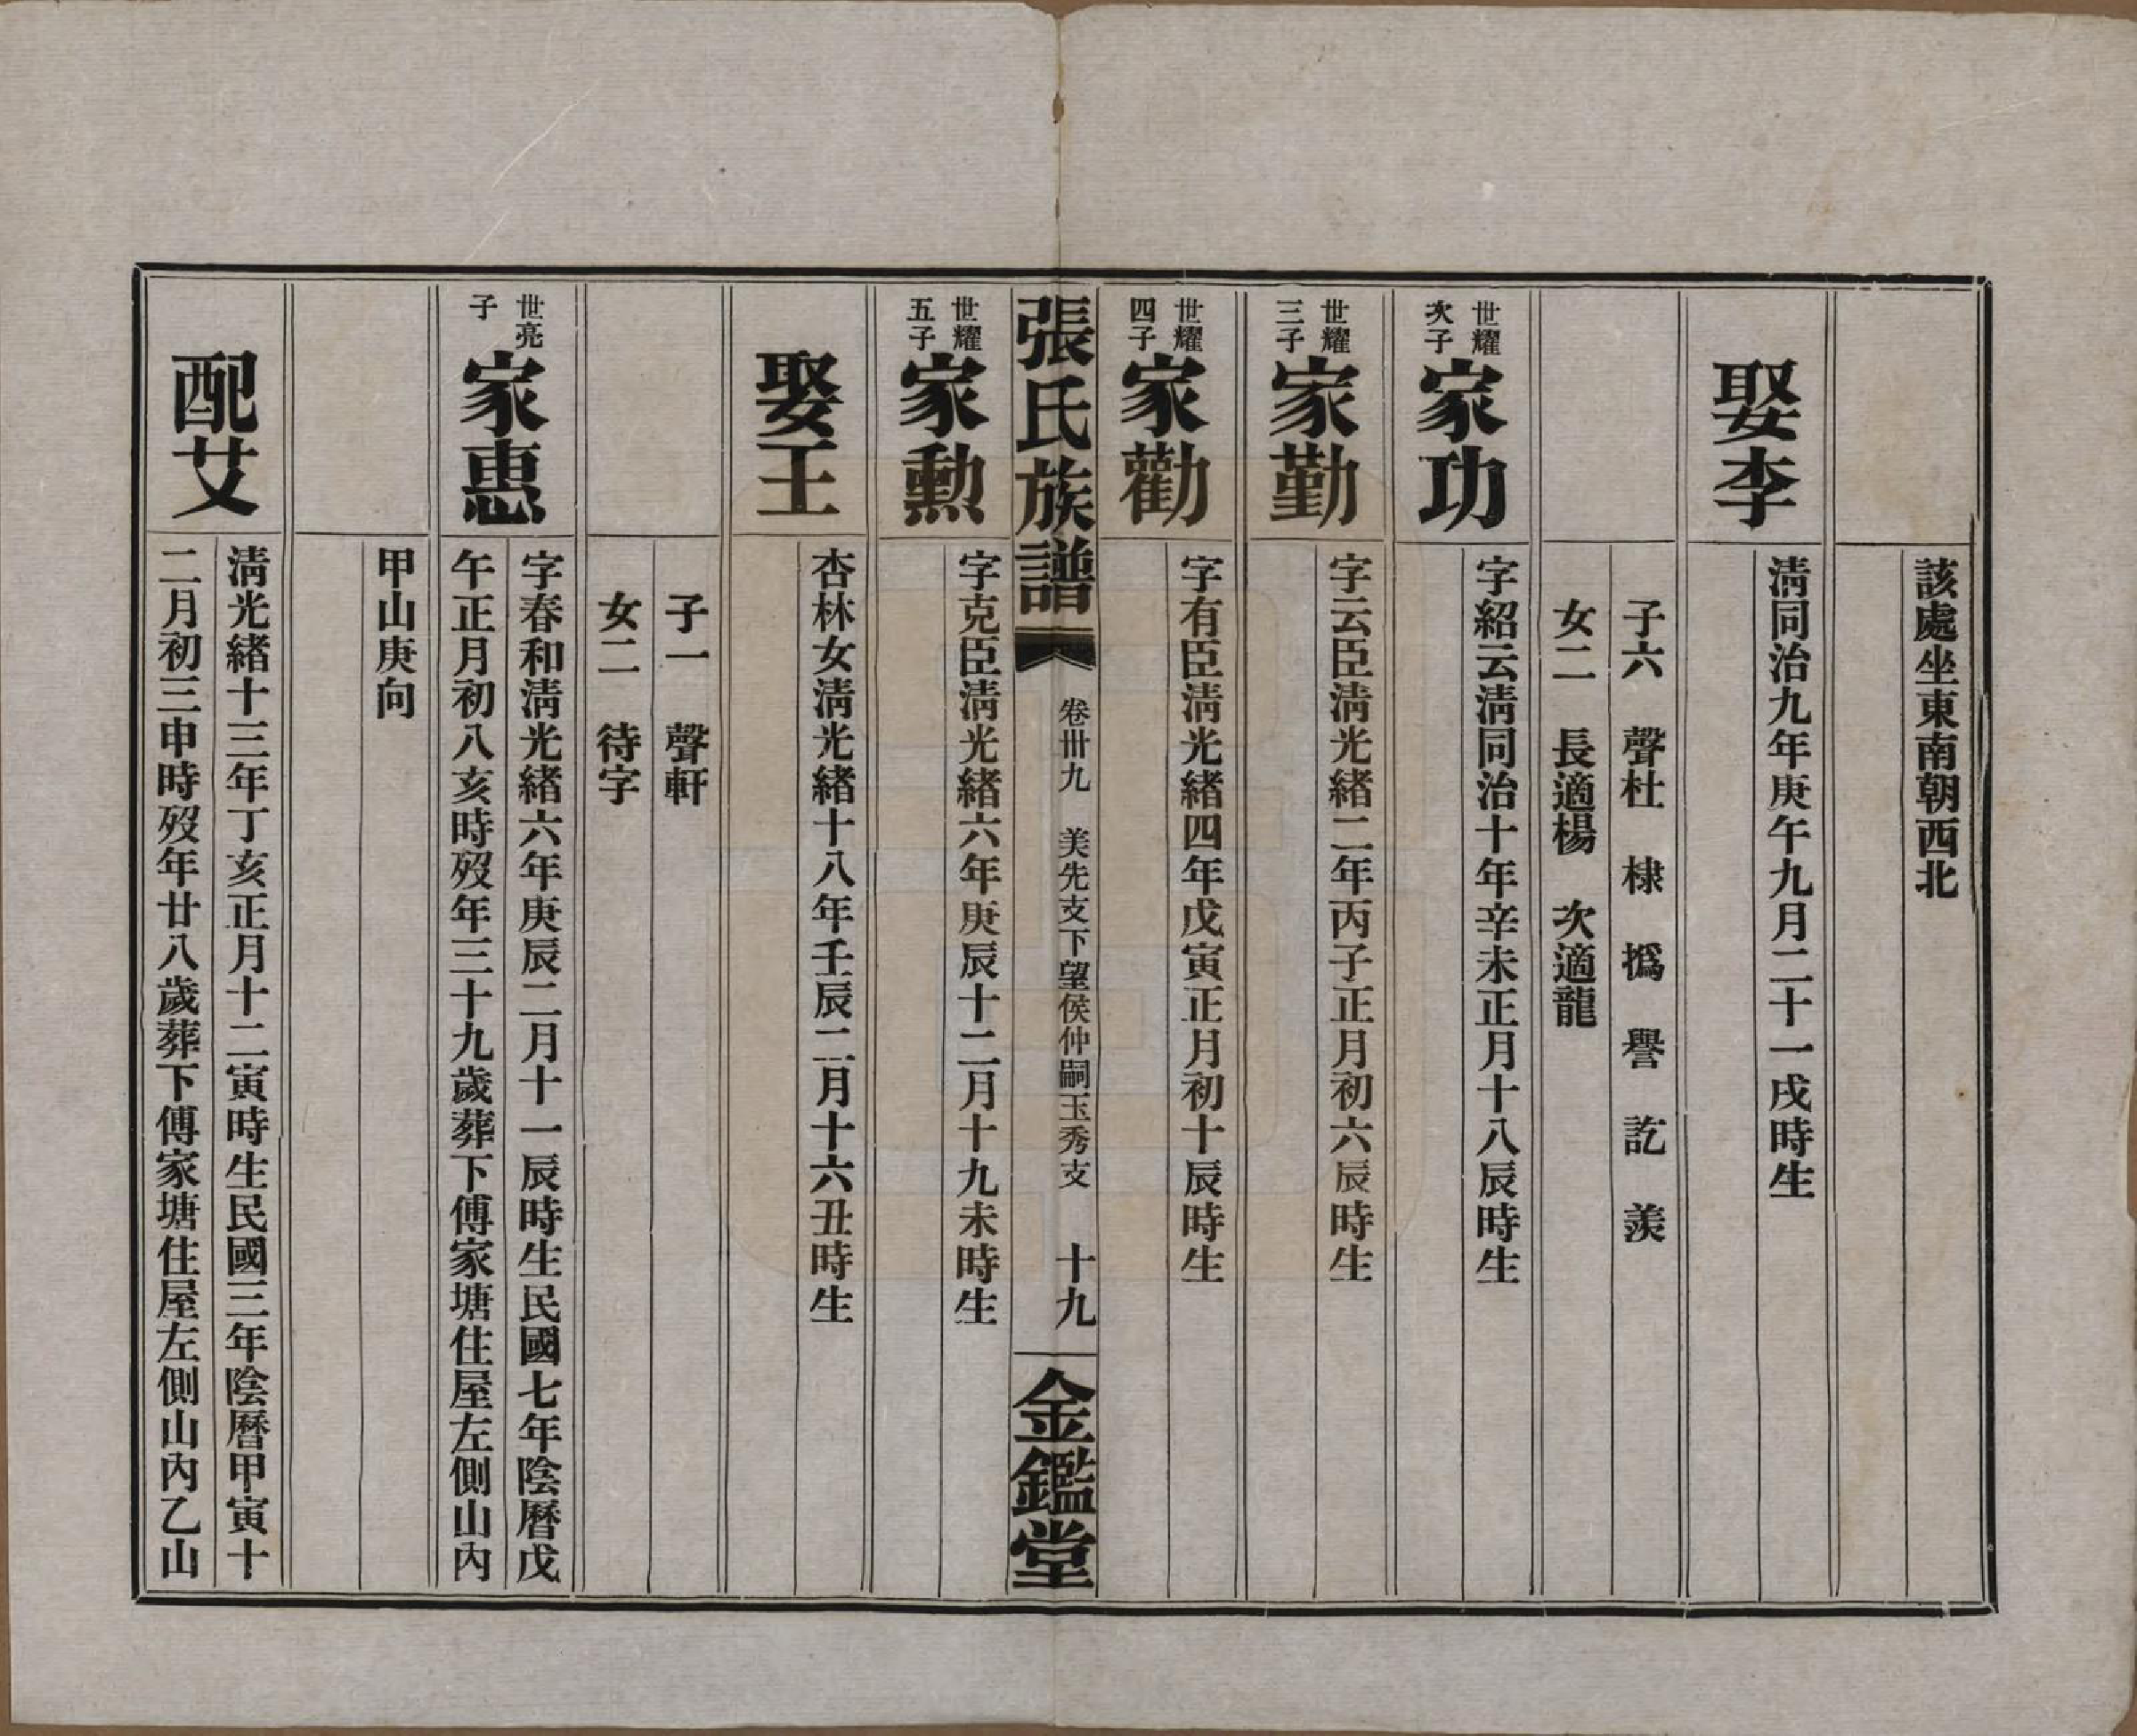 該處坐東南朝西北
娶李
清同治九年庚午九月二十一戌時生
子六　聲杜　棣　撝　譽　訖　羨
女二　長適楊　次適龍
世耀
次子
家功
字紹云清同治十年辛未正月十八辰時生
世耀
三子
家勤
字云臣清光緒二年丙子正月初六辰時生
世耀
四子
家勸
字有臣清光緒四年戊寅正月初十辰時生
張氏族譜
卷卅九　美先支下望侯仲嗣玉秀支　十九
金鑑堂
世耀
五子
家勳
字克臣清光緒六年庚辰十二月十九未時生
娶王
杏林女清光緒十八年壬辰二月十六丑時生
子一　聲軒
女二　待字
世亮
子
家惠
字春和清光緒六年庚辰二月十一辰時生民國七年陰曆戊
午正月初八亥時歿年三十九歲葬下傅家塘住屋左側山內
甲山庚向
配艾
清光緒十三年丁亥正月十二寅時生民國三年陰曆甲寅十
二月初三申時歿年廿八歲葬下傅家塘住屋左側山內乙山